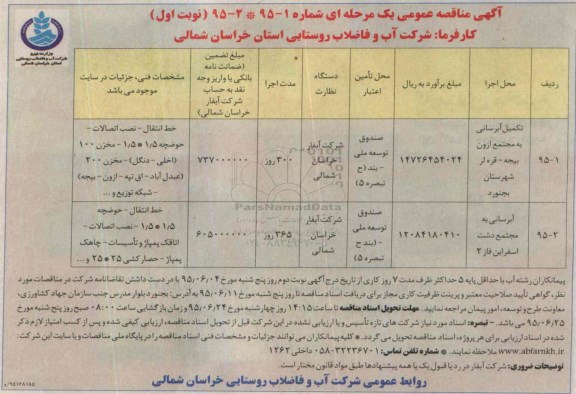 آگهی مناقصه عمومی یک مرحله ای شماره ۱-۹۵ * ۲-۹۵ (نوبت اول)
کارفرما: شرکت آب و فاضلاب روستایی استان خراسان شمالی
ردیف
محل اجرا
مبلغ برآورد به ریال
محل تأمین اعتبار
دستگاه نظارت
مدت اجرا
مبلغ تضمین (ضمانت نامه بانکی یا واریز وجه نقد به حساب شرکت آبفار خراسان شمالی)
مشخصات فنی، جزئیات در سایت موجود می باشد
۹۵-۱
تکمیل آبرسانی به مجتمع ازون بیجه - قره لر شهرستان بجنورد
۱۴۷۲۶۴۵۴۰۲۴
صندوق توسعه ملی - (بند ح تبصره ۵)
شرکت آبفار خراسان شمالی
۳۰۰ روز
۷۳۷۰۰۰۰۰۰
خط انتقال - نصب اتصالات - حوضچه ۱/۵ * ۱/۵ - مخزن ۱۰۰ (اخلی - دنگل) - مخزن ۲۰۰ (عبدل آباد - اق تپه - ازون - بیجه) - شبکه توزیع و ...
۹۵-۲
آبرسانی به مجتمع دشت اسفراین فاز ۲
۱۲۰۸۴۱۸۰۴۱۰
صندوق توسعه ملی - (بند ح تبصره ۵)
شرکت آبفار خراسان شمالی
۳۶۵ روز
۶۰۵۰۰۰۰۰۰
خط انتقال - حوضچه ۱/۵ * ۱/۵ - نصب اتصالات - اتاقک پمپاژ و تأسیسات - چاهک پمپاژ - حصارکشی ۲۵ * ۲۵ و ...
پیمانکاران رشته آب با حداقل پایه ۵ حداکثر ظرف مدت ۷ روز کاری از تاریخ درج آگهی نوبت دوم روز پنج شنبه مورخ ۹۵/۰۶/۰۴ با در دست داشتن تقاضانامه شرکت در مناقصات مورد
نظر، گواهی تأیید صلاحیت معتبر و پرینت ظرفیت کاری مجاز برای دریافت اسناد مناقصه تا روز پنج شنبه مورخ ۹۵/۰۶/۱۱ به آدرس: بجنورد بلوار مدرس جنب سازمان جهاد کشاورزی،
معاونت طرح و توسعه، امور پیمان مراجعه نمایید. مهلت تحویل اسناد مناقصه تا ساعت ۱۴:۱۵ روز چهارشنبه مورخ ۹۵/۰۶/۲۴ و زمان بازگشایی ساعت ۸:۰۰ صبح روز پنج شنبه مورخ
۹۵/۰۶/۲۵ می باشد. - تبصره: اسناد مورد نیاز شرکت های تازه تأسیس و یا ارزیابی نشده در این شرکت قبل از تحویل اسناد مناقصه، ارزیابی کیفی شده و پس از کسب امتیاز لازم ذکر
شده در اسناد ارزیابی برای هر پروژه، اسناد مناقصه تحویل می گردد. * کلیه پیمانکاران می توانند جزئیات و مشخصات فنی اسناد مناقصه را در پایگاه ملی مناقصات و یا سایت این شرکت:
www.abfarnkh.ir ملاحظه نمایند. * شماره تلفن تماس: ۰۵۸-۳۲۲۳۶۷۰۱ داخلی ۱۲۶۲
توضیحات ضروری: شرکت آبفار در رد یا قبول یک یا همه پیشنهادها طبق مواد قانون مختار است.
روابط عمومی شرکت آب و فاضلاب روستایی خراسان شمالی
ParsNamadData